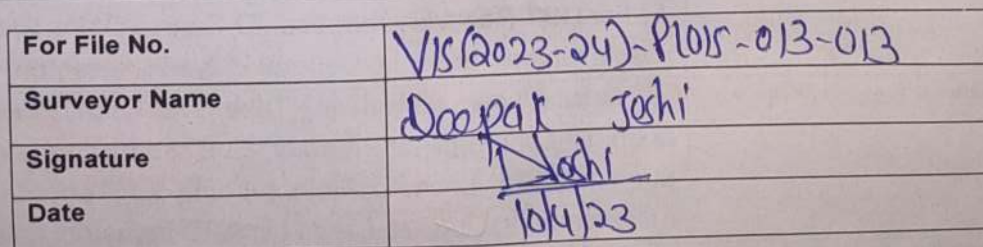 For File No. VIS(2023-24)-PL015-013-013
Surveyor Name Deepak Joshi
Signature DJoshi
Date 10/4/23